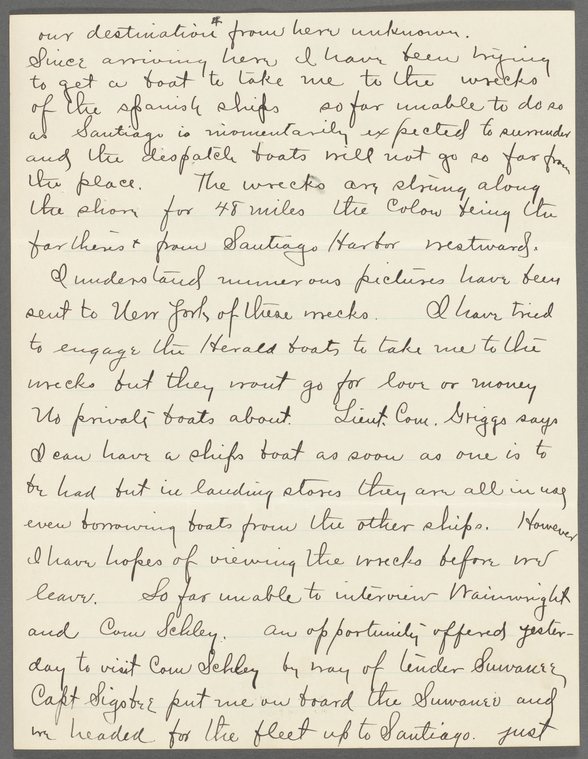 our destination from here unknown.
Since arriving here I have been trying
to get a boat to take me to the wrecks
of the spanish ships so far unable to do so
as Santiago is momentarily expected to surrender
and the despatch boats will not go so far from
the place. The wrecks are strung along
the shore for 48 miles the Colon being the
fartherist from Santiago Harbor westward.
I understand numerous pictures have been
sent to New York of these wrecks. I have tried
to engage the Herald boats to take me to the
wrecks but they wont go for love or money
No private boats about. Lieut. Com. Griggs says
I can have a ships boat as soon as one is to
be had but in landing stores they are all in use
even borrowing boats from the other ships. However
I have hopes of viewing the wrecks before we
leave. So far unable to interview Wainwright
and Com Schley. An opportunity offered yester-
day to visit Com Schley by way of tender Suwanee,
Capt Sigsbee put me on board the Suwanee and
we headed for the fleet up to Santiago. just